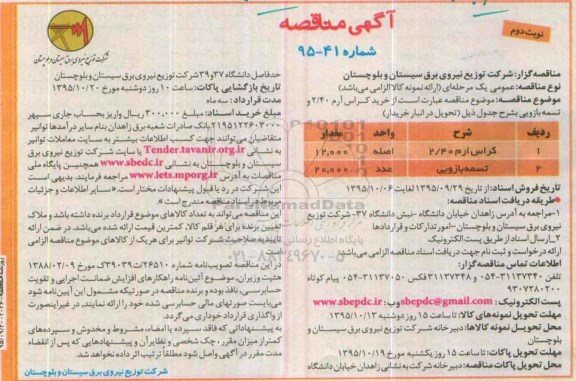 آگهی مناقصه
شماره ۴۱-۹۵
نوبت دوم
شرکت توزیع نیروی برق سیستان و بلوچستان
مناقصه گزار: شرکت توزیع نیروی برق سیستان و بلوچستان
نوع مناقصه: عمومی یک مرحله‌ای (ارائه نمونه کالا الزامی می‌باشد)
موضوع مناقصه: موضوع مناقصه عبارت است از خرید کراس آرم ۲/۴۰ و
تسمه بازویی بشرح جدول ذیل (تحویل در انبار خریدار)
ردیف شرح واحد مقدار
۱ کراس ارم ۲/۴۰ اصله ۱۲,۰۰۰
۲ تسمه بازویی عدد ۲۰,۰۰۰
تاریخ فروش اسناد: از تاریخ ۱۳۹۵/۰۹/۲۹ لغایت ۱۳۹۵/۱۰/۰۶
طریقه دریافت اسناد مناقصه:
۱-مراجعه به آدرس زاهدان خیابان دانشگاه -نبش دانشگاه ۳۷- شرکت توزیع
نیروی برق سیستان و بلوچستان -امور تدارکات و قراردادها
۲_ارسال اسناد از طریق پست الکترونیک
ارائه درخواست و ثبت نام جهت دریافت اسناد مناقصه الزامی می‌باشد
اطلاعات تماس مناقصه گزار:
تلفن: ۳۱۱۳۷۳۴۰-۰۵۴ و ۳۱۱۳۷۳۴۸ فکس: ۳۱۱۳۷۰۵۰-۰۵۴ پیام کوتاه
۹۳۰۷۳۸۰۲۰۰
پست الکترونیک: sbepdc@gmail.com وب: www.sbepdc.ir
مهلت تحویل نمونه های کالا: تا ساعت ۱۵ روز دوشنبه ۱۳۹۵/۱۰/۱۳
محل تحویل نمونه کالاها: دبیرخانه شرکت توزیع نیروی برق سیستان و
بلوچستان
مهلت تحویل پاکات: تا ساعت ۱۵ روز یکشنبه مورخ ۱۳۹۵/۱۰/۱۹
محل تحویل پاکات مناقصه: دبیرخانه شرکت به نشانی زاهدان خیابان دانشگاه
حدفاصل دانشگاه ۳۷ و ۳۹ شرکت توزیع نیروی برق سیستان و بلوچستان
تاریخ بازگشایی پاکات: ساعت ۱۰ روز دوشنبه مورخ ۱۳۹۵/۱۰/۲۰
مدت قرارداد: سه ماه
مبلغ خرید اسناد: مبلغ ۳۰۰,۰۰۰ ریال واریز بحساب جاری سپهر
۲۱۹۵۱۲۲۶۰۳۰۰۲ بانک صادرات شعبه برق زاهدان بنام سایر درآمدها توانیر
متقاضیان می‌توانند جهت کسب اطلاعات بیشتر به سایت معاملات توانیر
به نشانی Tender.tavanir.org.ir یا سایت شرکت توزیع نیروی برق
سیستان و بلوچستان به نشانی www.sbedc.ir و همچنین پایگاه ملی
مناقصات به آدرس www.iets.mporg.ir مراجعه فرمایند. بدیهی است
این شرکت در رد یا قبول پیشنهادات مختار است. «سایر اطلاعات و جزئیات
مربوطه در اسناد مناقصه مندرج است»
این مناقصه می‌تواند به تعداد کالاهای موضوع قرارداد برنده داشته باشد و ملاک
تعیین برنده برای هر قلم کالا، کمترین قیمت ارائه شده می‌باشد. در ضمن ارائه
تاییدیه صلاحیت شرکت توانیر برای هریک از کالاهای موضوع مناقصه الزامی
می‌باشد.
در این مناقصه تصویب نامه شماره ۲۶۵۱۰/ت۳۹۰۳۹ک مورخ ۱۳۸۸/۰۲/۰۹
هئیت وزیران، موضوع آئین‌نامه راهکارهای افزایش ضمانت اجرایی و تقویت
حسابرسی، نافذ بوده و برنده مناقصه در صورتیکه مشمول این آیین نامه شود
می‌بایست صورتهای مالی حسابرسی شده خود را ارائه نمایند، در غیر اینصورت
از واگذاری قرارداد خودداری می‌گردد.
به پیشنهاداتی که فاقد سپرده یا امضاء، مشروط و مخدوش و سپرده‌های
کمتر از میزان مقرر، چک شخصی و نظایر آن و پیشنهادهایی که پس از انقضاء
مدت مقرر در آگهی واصل شود مطلقا ترتیب اثر داده نخواهد شد.
شرکت توزیع نیروی برق سیستان و بلوچستان